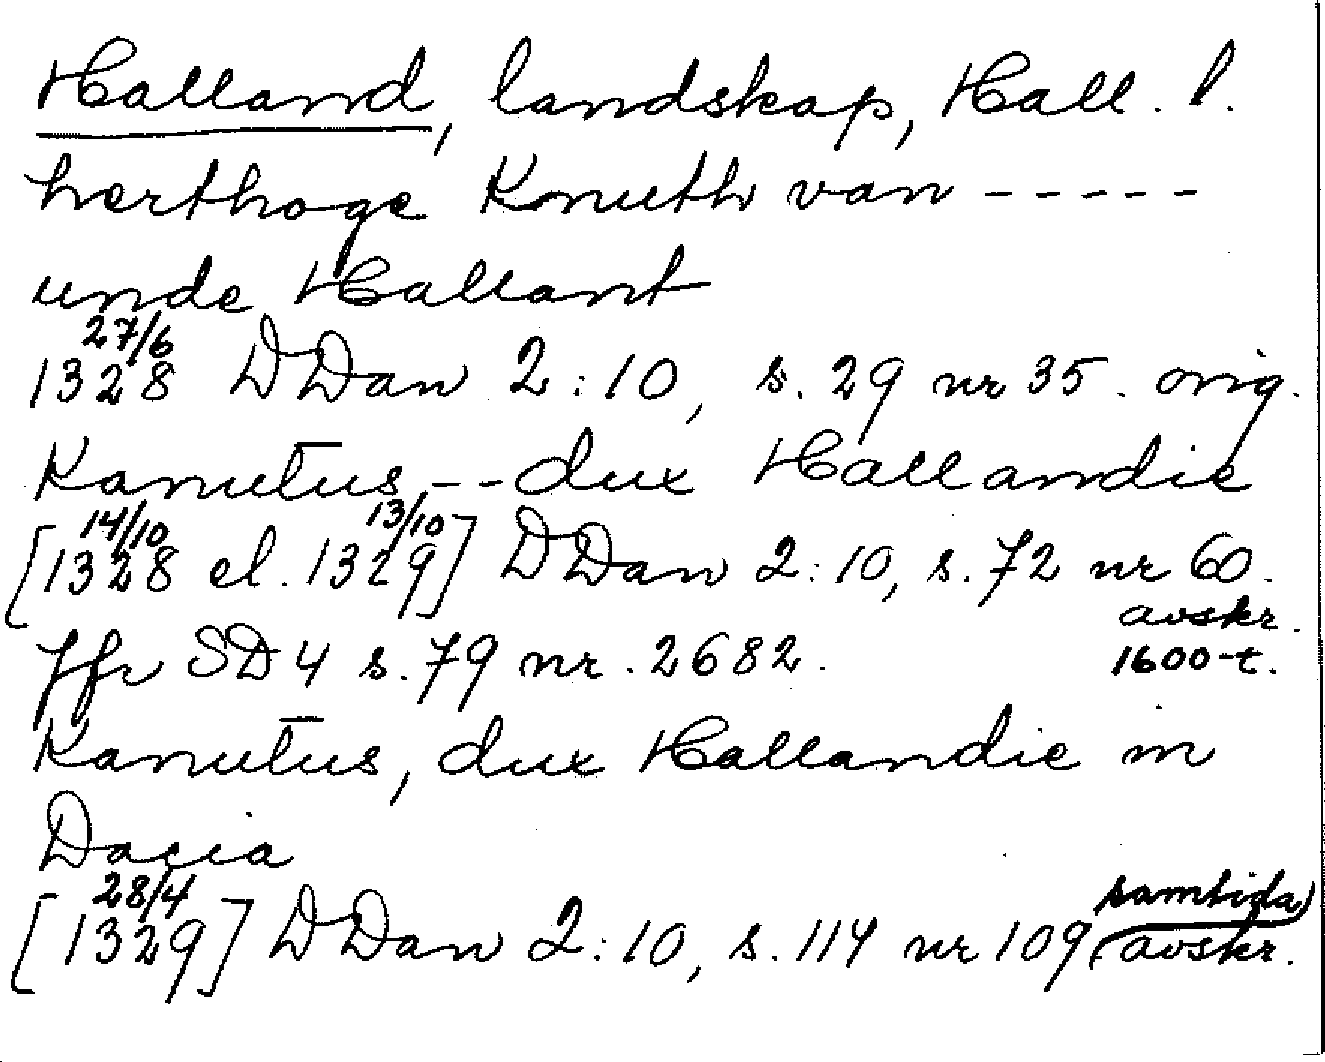 Halland, landskap, Hall. l.
herthoge Knuth van - - - - -
unde Hallant
27/6
1328 DDan 2:10, s. 29 nr 35. orig.
Kanutus, - - dux Hallandie
14/10 13/10
[1328 el. 1329] DDan 2:10, s. 72 nr 60.
avskr.
Jfr SD 4 s. 79 nr. 2682. 1600-t.
Kanutus, dux Hallandie in
Dacia
28/4 samtida
[1329] DDan 2:10, s. 114 nr 109 avskr.